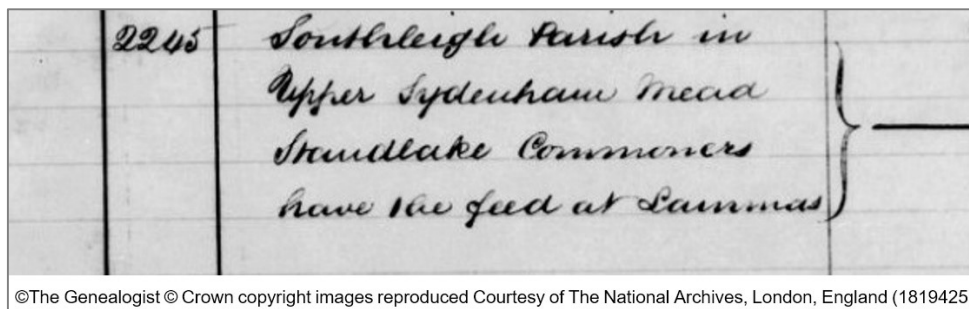 2245 Southleigh Parish in
Upper Sydenham Mead
Standlake Commoners
have the feed at Lammas
©The Genealogist © Crown copyright images reproduced Courtesy of The National Archives, London, England (1819425